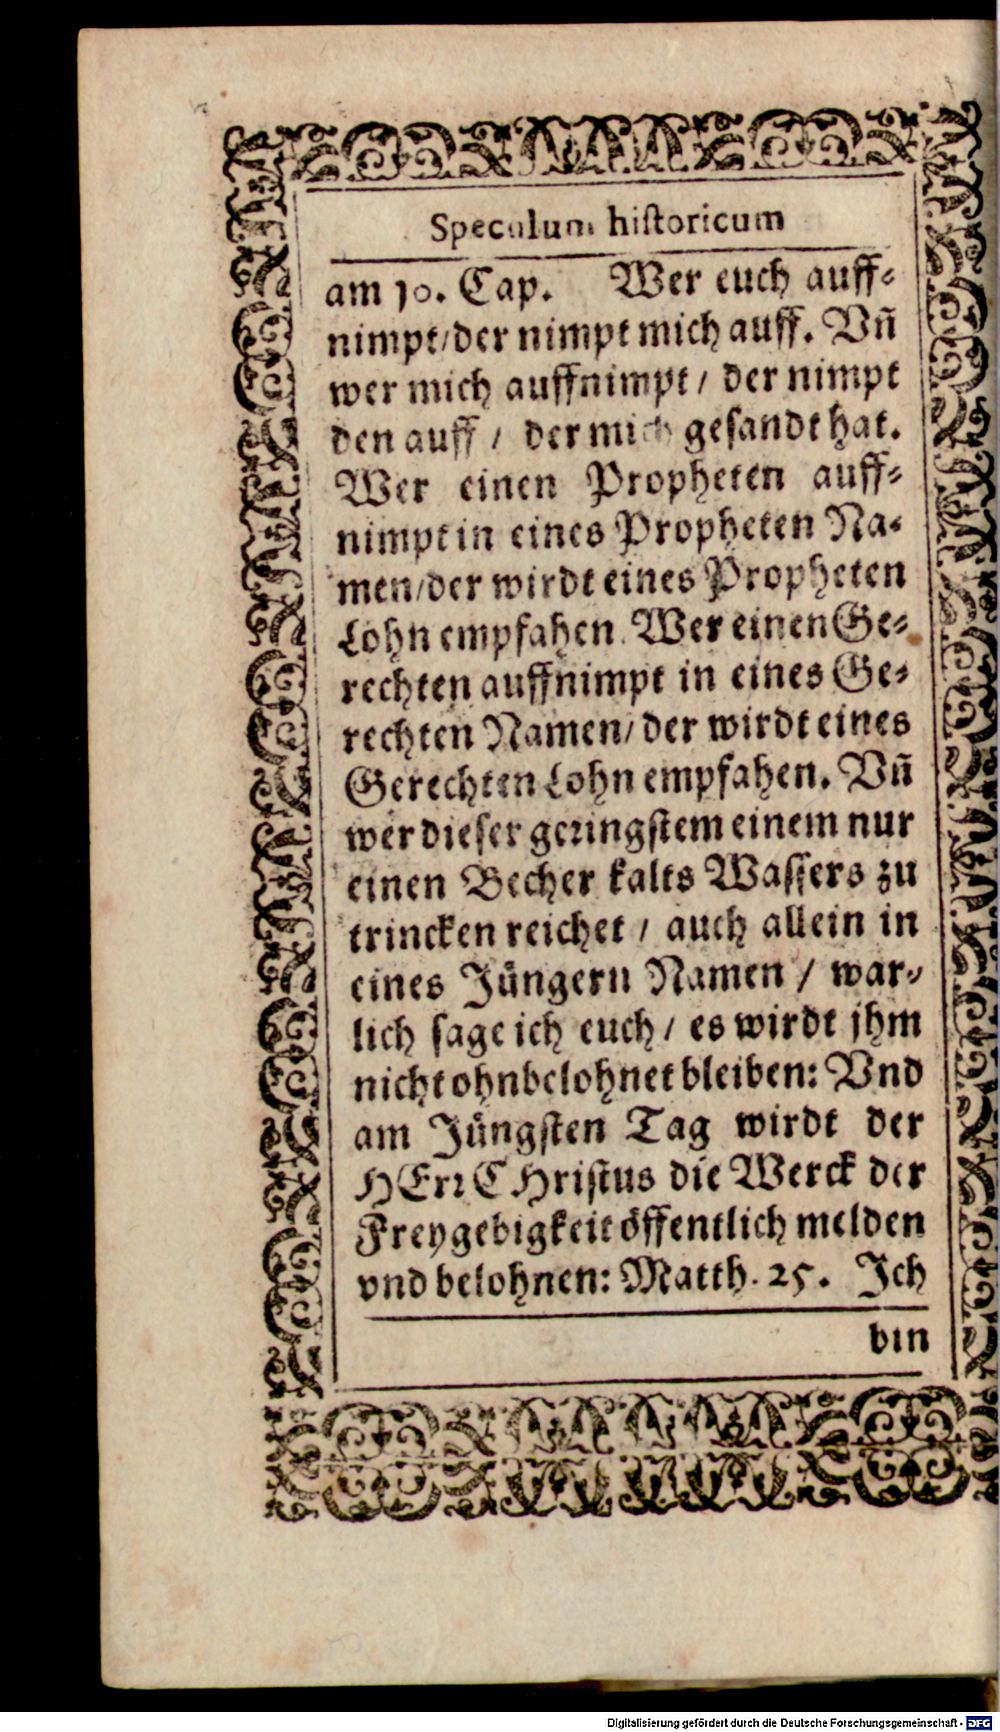 Speculum historicum
am 10. Cap. Wer euch auff⸗
nimpt/der nimpt mich auff. Vñ
wer mich auffnimpt / der nimpt
den auff / der mich gesandt hat.
Wer einen Propheten auff⸗
nimpt in eines Propheten Na⸗
men/der wirdt eines Propheten
Lohn empfahen. Wer einen Ge⸗
rechten auffnimpt in eines Ge⸗
rechten Namen/ der wirdt eines
Gerechten Lohn empfahen. Vñ
wer dieser geringstem einem nur
einen Becher kalts Wassers zu
trincken reichet / auch allein in
eines Jüngern Namen / war⸗
lich sage ich euch / es wirdt jhm
nicht ohnbelohnet bleiben: Vnd
am Jüngsten Tag wirdt der
HErr CHristus die Werck der
Freygebigkeit öffentlich melden
vnd belohnen: Matth. 25. Jch
bin
Digitalisierung gefördert durch die Deutsche Forschungsgemeinschaft - DFG